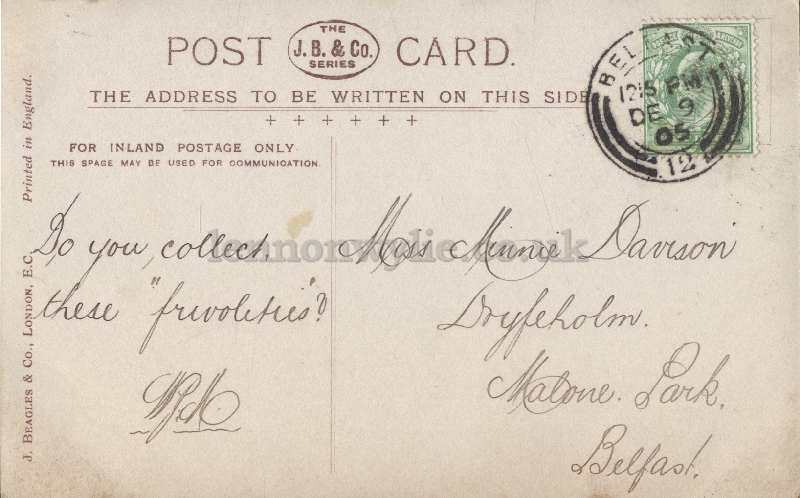 POST CARD.
THE
J.B. & Co.
SERIES
THE ADDRESS TO BE WRITTEN ON THIS SIDE
FOR INLAND POSTAGE ONLY
THIS SPACE MAY BE USED FOR COMMUNICATION.
BELFAST
12 15 PM
DE 9
05
12
J. BEAGLES & Co., LONDON, E.C.
Printed in England.
Do you collect
these "frivolities"?
Miss Minnie Davison
Dryfeholm.
Malone. Park.
Belfast.
lennonwylie.co.uk